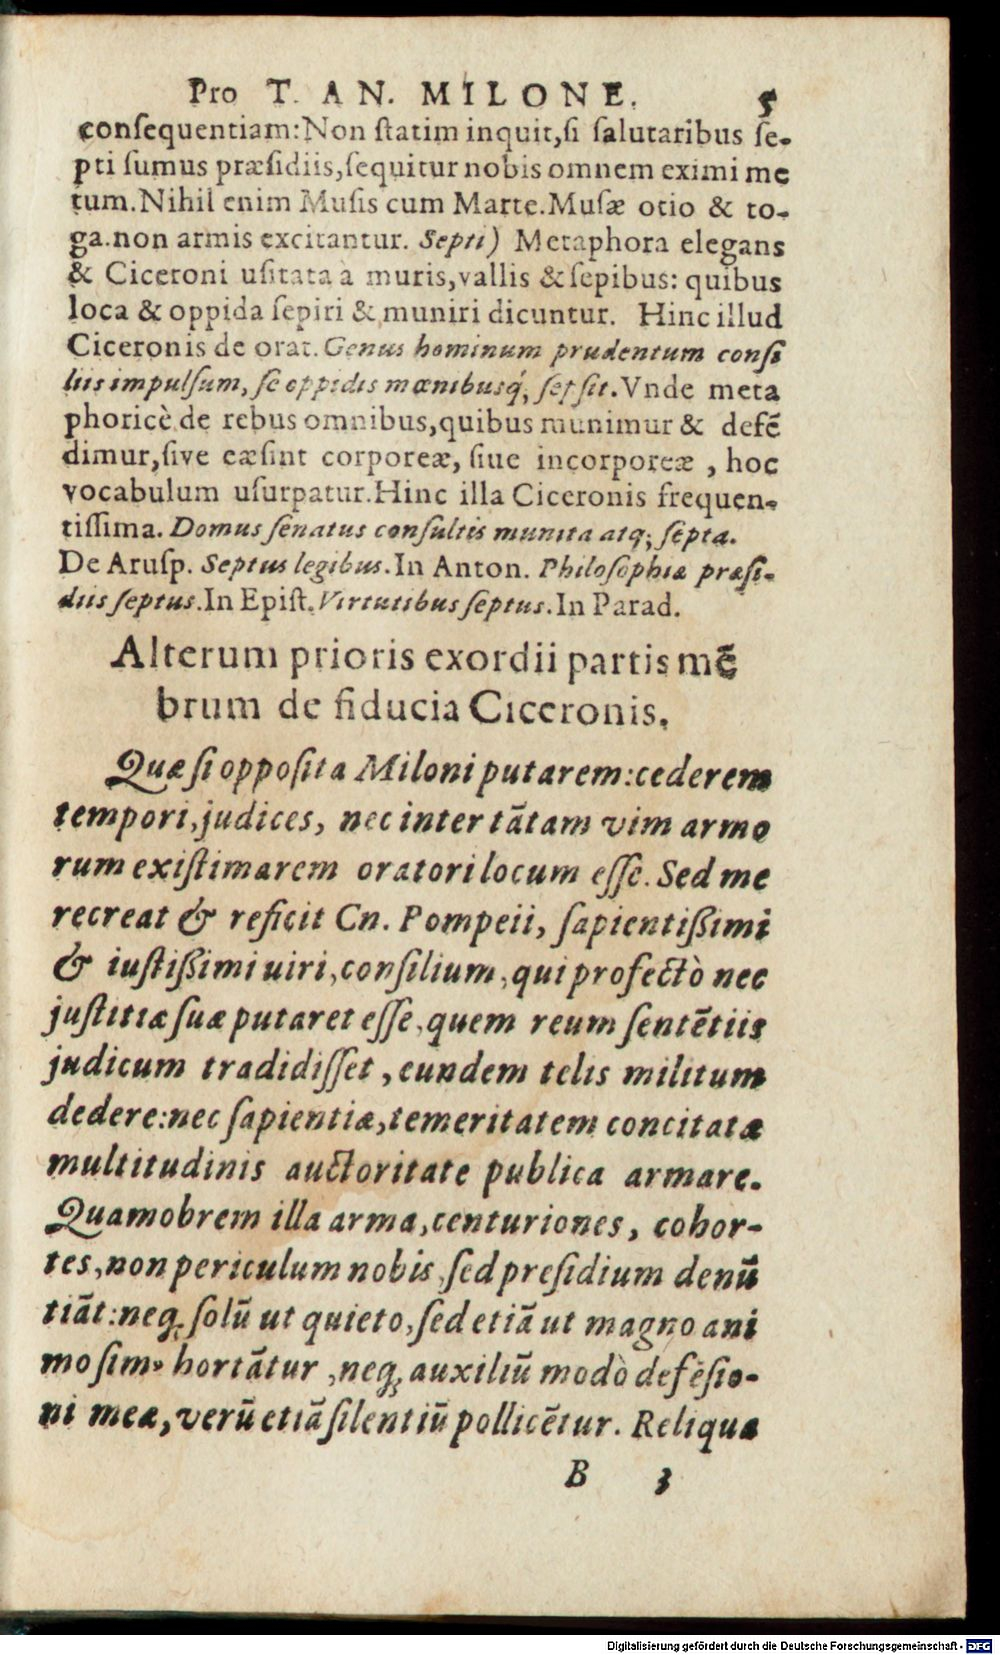 Pro T. AN. MILONE. 5
conſequentiam:Non ſtatim inquit,ſi ſalutaribus ſe-
pti ſumus præſidiis,ſequitur nobis omnem eximi me
tum.Nihil enim Muſis cum Marte.Muſæ otio & to-
ga.non armis excitantur. Septi) Metaphora elegans
& Ciceroni uſitata à muris,vallis & ſepibus: quibus
loca & oppida ſepiri & muniri dicuntur. Hinc illud
Ciceronis de orat. Genus hominum prudentum conſi
liis impulſum, ſe oppidis mœnibusq́; ſepſit. Vnde meta
phoricè de rebus omnibus,quibus munimur & defē
dimur,ſive eæ ſint corporeæ, ſiue incorporeæ , hoc
vocabulum uſurpatur.Hinc illa Ciceronis frequen-
tiſſima. Domus ſenatus conſultis munita atq; ſepta.
De Aruſp. Septus legibus. In Anton. Philoſophiæ præſi-
diis ſeptus. In Epiſt. Virtutibus ſeptus. In Parad.
Alterum prioris exordii partis mē
brum de fiducia Ciceronis.
Quæ ſi oppoſita Miloni putarem:cederem
tempori,judices, nec inter tātam vim armo
rum exiſtimarem oratori locum eſſe. Sed me
recreat & reficit Cn. Pompeii, ſapientißimi
& iuſtißimi uiri,conſilium,qui profectò nec
juſtitiæ ſuæ putaret eſſe,quem reum ſentētiis
judicum tradidiſſet , eundem telis militum
dedere:nec ſapientiæ,temeritatem concitatæ
multitudinis auctoritate publica armare.
Quamobrem illa arma,centuriones, cohor-
tes,non periculum nobis,ſed preſidium denū
tiāt:neq; ſolū ut quieto,ſed etiā ut magno ani
mo ſim, hortātur ,neq; auxiliū modò defēſio-
ni meæ, verū etiā ſilentiū pollicētur. Reliqua
B 3
Digitalisierung gefördert durch die Deutsche Forschungsgemeinschaft - DFG